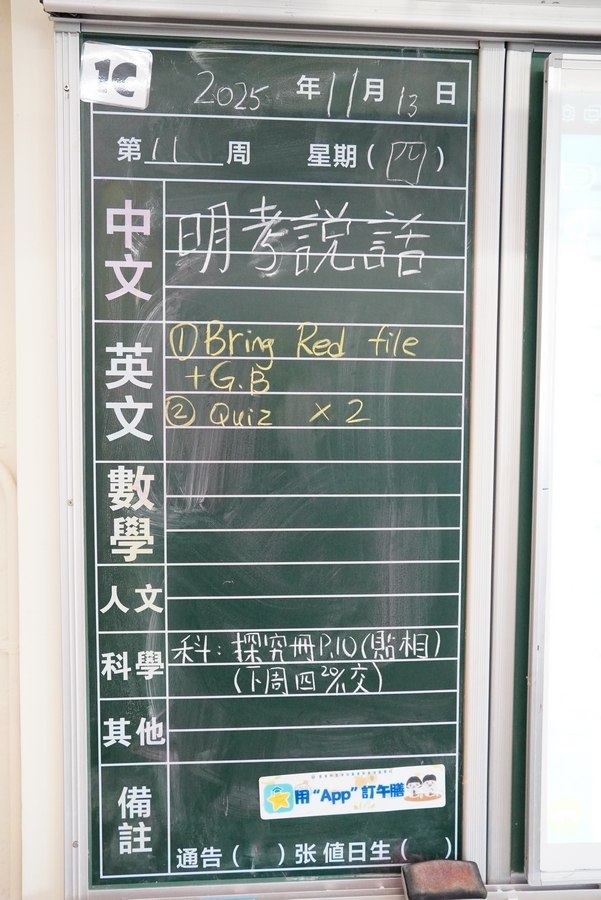 1C
2025 年 11 月 13 日
第 11 周 星期 ( 四 )
中文
明考說話
英文
① Bring Red file
+G.B
② Quiz × 2
數學
人文
科學
科: 探究冊P.10(貼相)
(下周四20/11交)
其他
備註
用“App”訂午膳
通告 ( ) 张 值日生 ( )